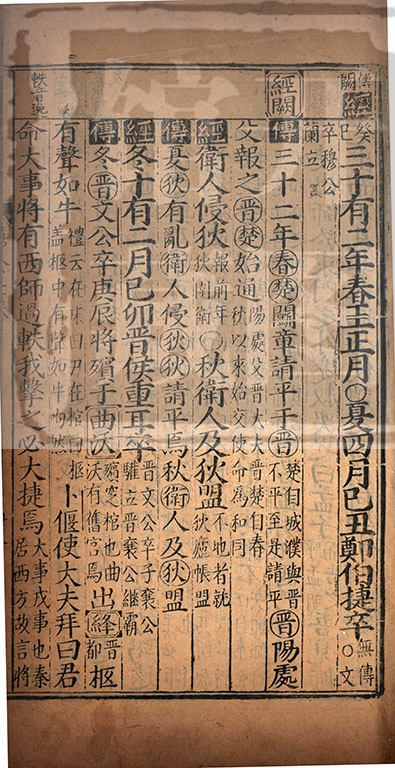 傳闕
經癸巳三十有二年春王正月○夏四月己丑鄭伯捷卒無傳○文
卒穆公蘭立
經闕
傳三十二年春楚鬭章請平于晉楚自城濮與晉不平至是請平晉陽處
父報之晉楚始通陽處父晉大夫晉楚自春秋以來始交使命為和同
經衛人侵狄報前年狄圍衛○秋衛人及狄盟不地者就狄廬帳盟
傳夏狄有亂衛人侵狄狄請平焉秋衛人及狄盟
經冬十有二月己卯晉侯重耳卒晉文公卒子襄公驩立晉襄公繼霸
傳冬晉文公卒庚辰將殯于曲沃殯窆棺也曲沃有舊宮焉出絳晉都柩
有聲如牛禮云在牀曰尸在棺曰柩蓋柩中有聲如牛呴然卜偃使大夫拜曰君
軼音逸
命大事將有西師過軼我擊之必大捷焉大事戎事也秦居西方故言將